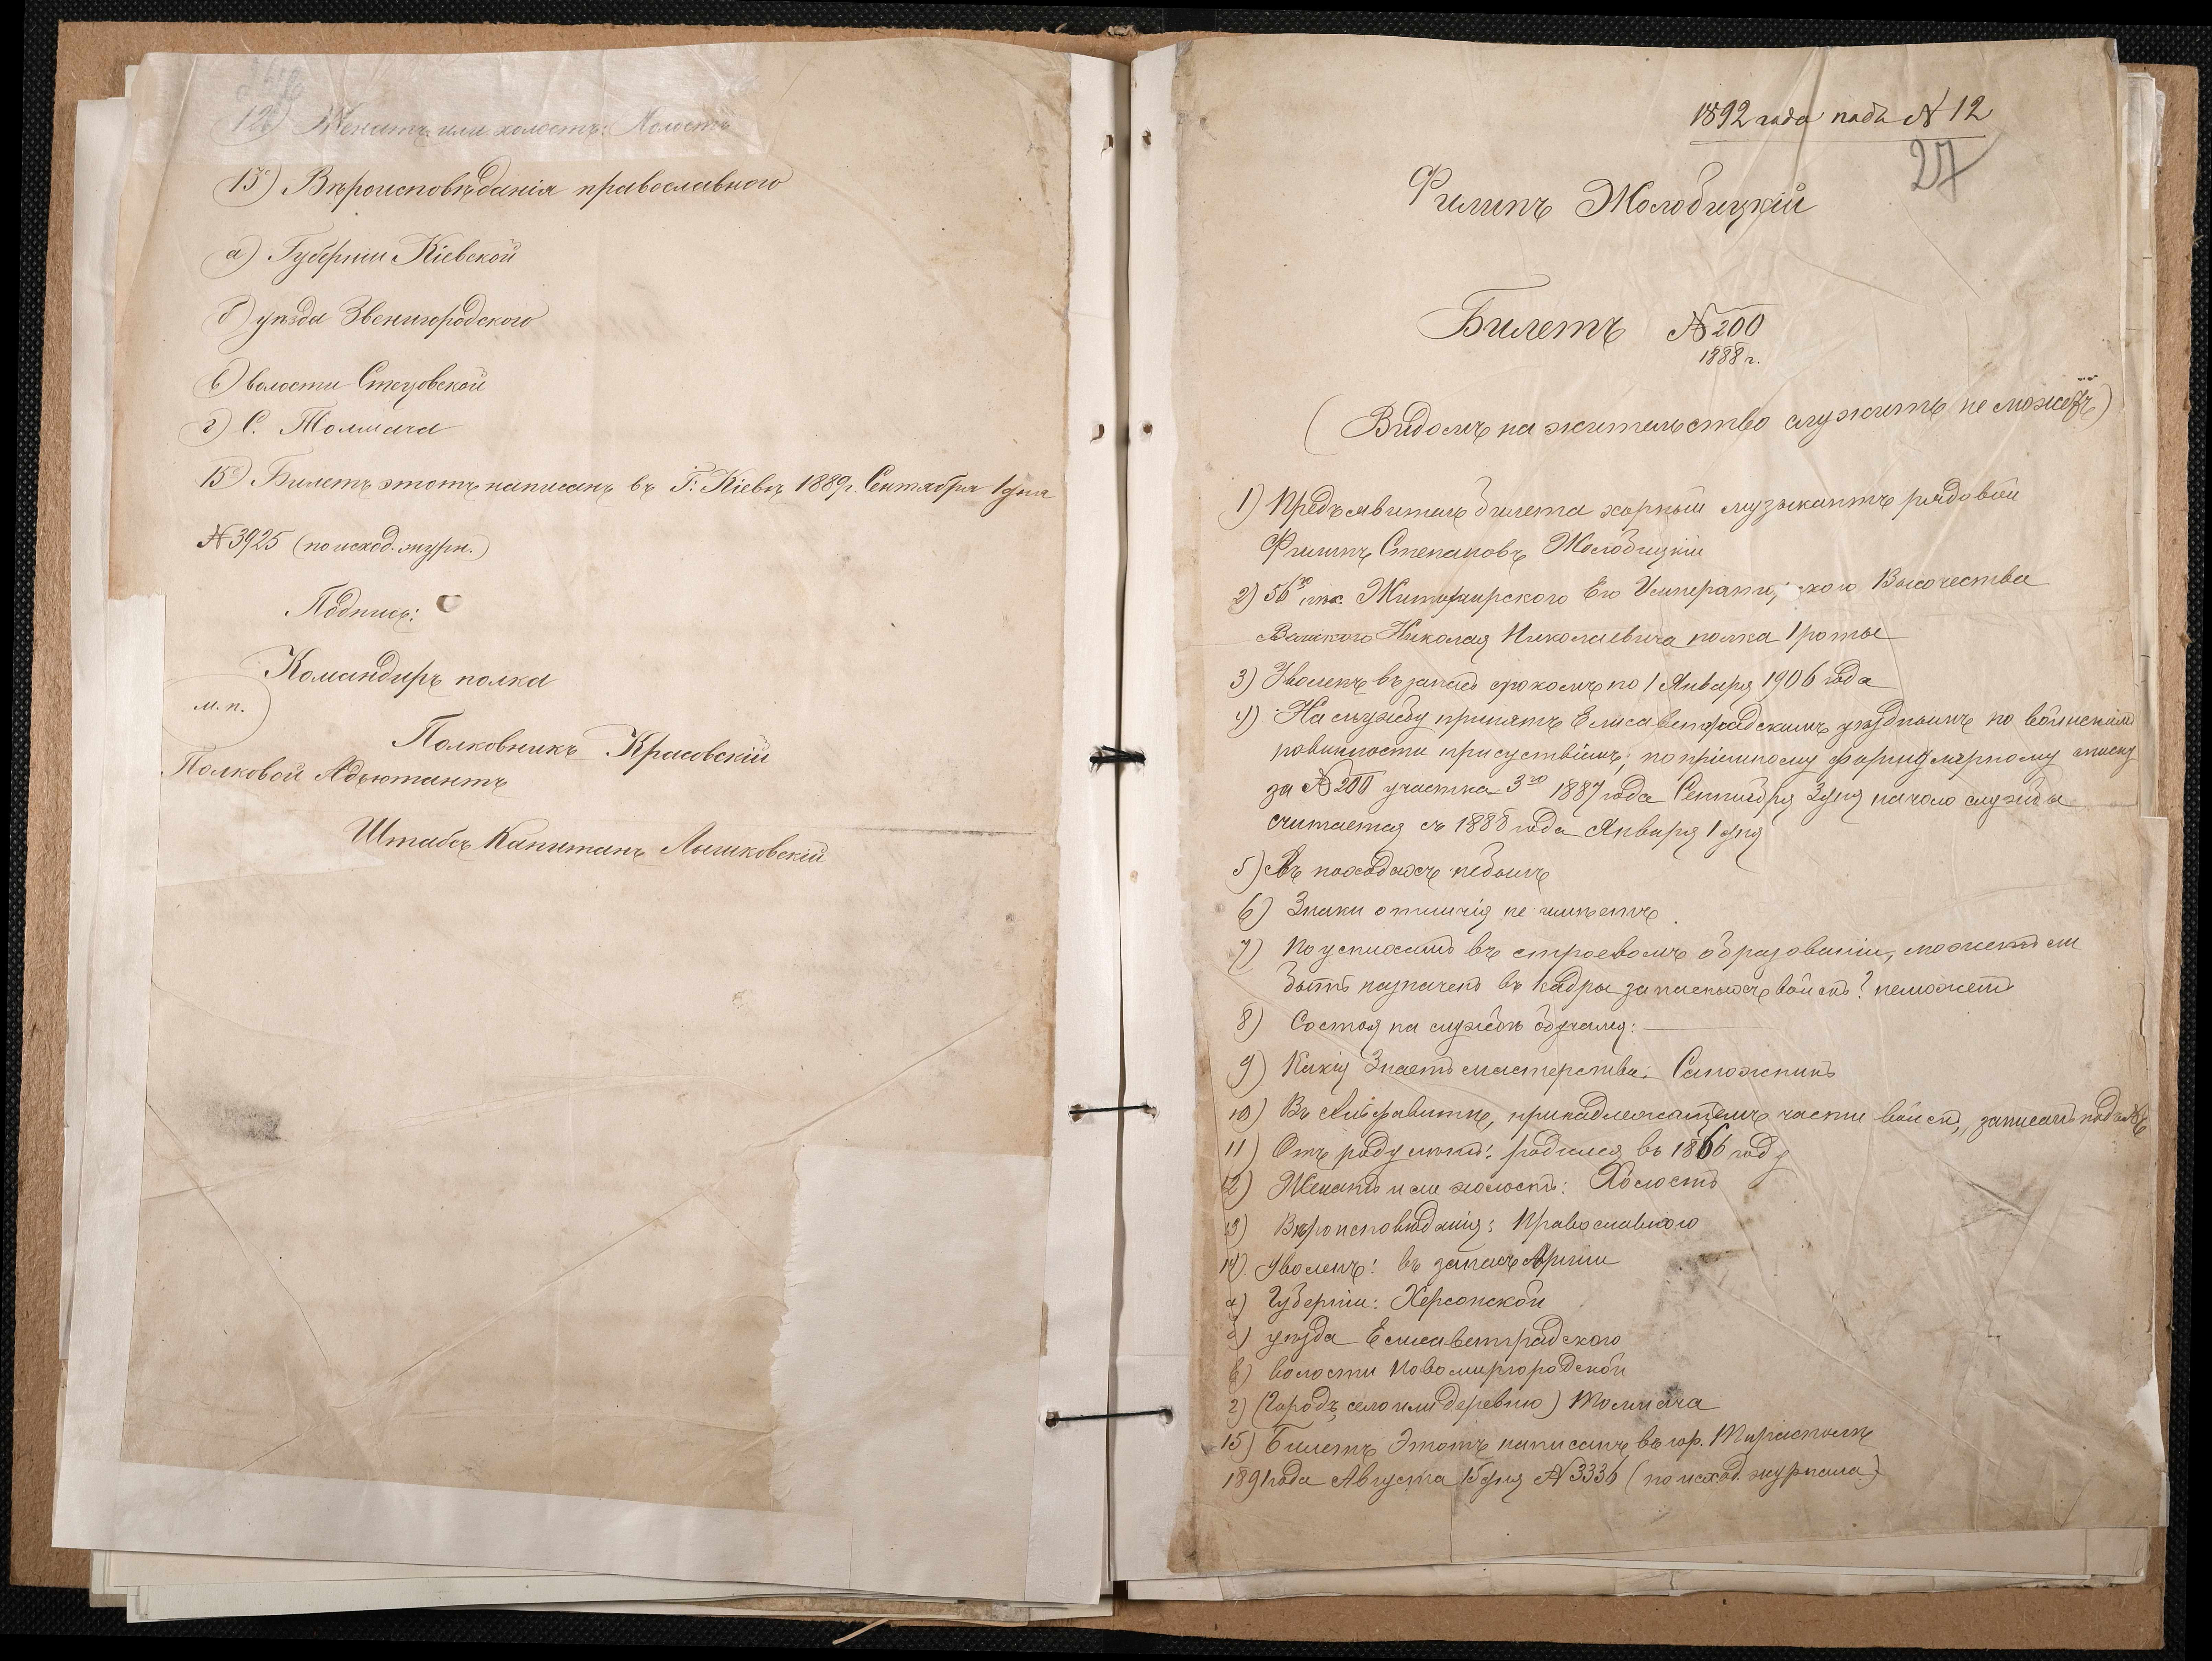 12) Женатъ или холостъ: Холостъ
13) Вѣроисповѣданія православнаго
а) Губерніи Кіевской
б) уѣзда Звенигородского
в) волости Стецовской
г) С. Толмача
15) Билетъ этотъ написанъ въ Г. Кіевѣ 1889 г. Сентября 1 дня
№ 3925 (по исход. журн.)
Подпись:
Командиръ полка
м. п.
Полковникъ Красовскій
Полковой Адъютантъ
Штабсъ Капитанъ Лышковскій
1892 года подъ N 12
27
Филипъ Жолобицкій
Билетъ № 200
1888 г.
(Видомъ на жительство служить не можетъ)
1) Предъявитель билета хорный музыкантъ рядовой
Филипъ Степановъ Жолобицкій
2) 56го пѣх. Житомирского Его Императ ского Высочества
Великого Николая Николаевича полка 1 роты
3) Уволенъ въ запасъ срокомъ по 1 Января 1906 года
4) На службу принятъ Елисаветградскимъ уѣзднымъ по воинской
повинности присуствіемъ; по пріемному формулярному списку
за № 200 участка 3го 1887 года Сентября 3 дня начало службы
считается съ 1888 года Января 1 дня
5) Въ походахъ небылъ
6) Знаки отличія не имѣетъ
7) По успѣхамъ въ строевомъ образованіи, можетъ ли
быть назначенъ въ кадры запасныхъ войскъ? неможетъ
8) Состоя на службѣ обучался:
9) Какія Знаетъ мастерства: Сапожникъ
10) Въ Алфавитѣ, принадлежащемъ части войскъ, записанъ подъ №
11) Отъ роду лѣтъ: родился въ 1866 году
12) Женатъ или холостъ: Холостъ
13) Вѣроисповѣданія: Православного
14) Уволенъ: въ запасъ Арміи
а) Губерніи: Херсонской
б) уѣзда Елисаветградского
в) волости Новомиргородской
г) (Городъ, село или деревню) Толмача
15) Билетъ Этотъ написанъ въ гор. Тирасполѣ
1891 года Августа 15 дня N 3336 (по исход. журнала)